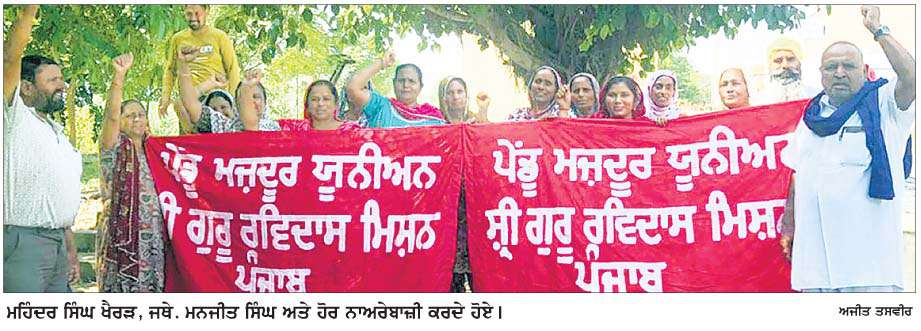 ਪੇਂਡੂ ਮਜ਼ਦੂਰ ਯੂਨੀਅਨ
ਸ਼੍ਰੀ ਗੁਰੂ ਰਵਿਦਾਸ ਮਿਸ਼ਨ
ਪੰਜਾਬ
ਪੇਂਡੂ ਮਜ਼ਦੂਰ ਯੂਨੀਅਨ
ਸ਼੍ਰੀ ਗੁਰੂ ਰਵਿਦਾਸ ਮਿਸ਼ਨ
ਪੰਜਾਬ
ਮਹਿੰਦਰ ਸਿੰਘ ਖੈਰੜ, ਜਥੇ. ਮਨਜੀਤ ਸਿੰਘ ਅਤੇ ਹੋਰ ਨਾਅਰੇਬਾਜ਼ੀ ਕਰਦੇ ਹੋਏ।
ਅਜੀਤ ਤਸਵੀਰ